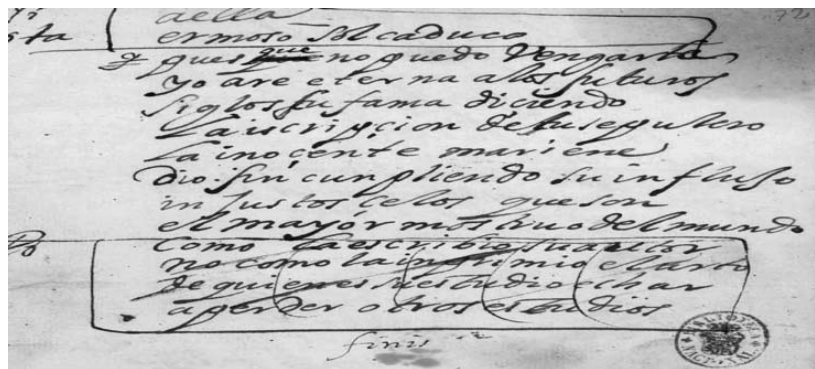 aella
ermoso sol caduco
pues que no puedo Vengarla
yo are eterna a los futuros
siglos su fama diciendo
la iscripçion de su sepulcro
la inocente mariene
dio fin cunpliendo su influso
injustos celos que son
el mayor mostruo del mundo
Como la escribio su autor
no como la inprimio el urto
de quien es su estudio echar
a perder otros estudios
finis